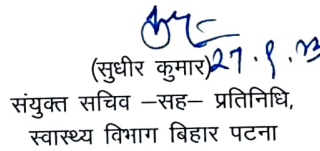 (सुधीर कुमार) 27.9.23
संयुक्त सचिव –सह– प्रतिनिधि,
स्वास्थ्य विभाग बिहार पटना